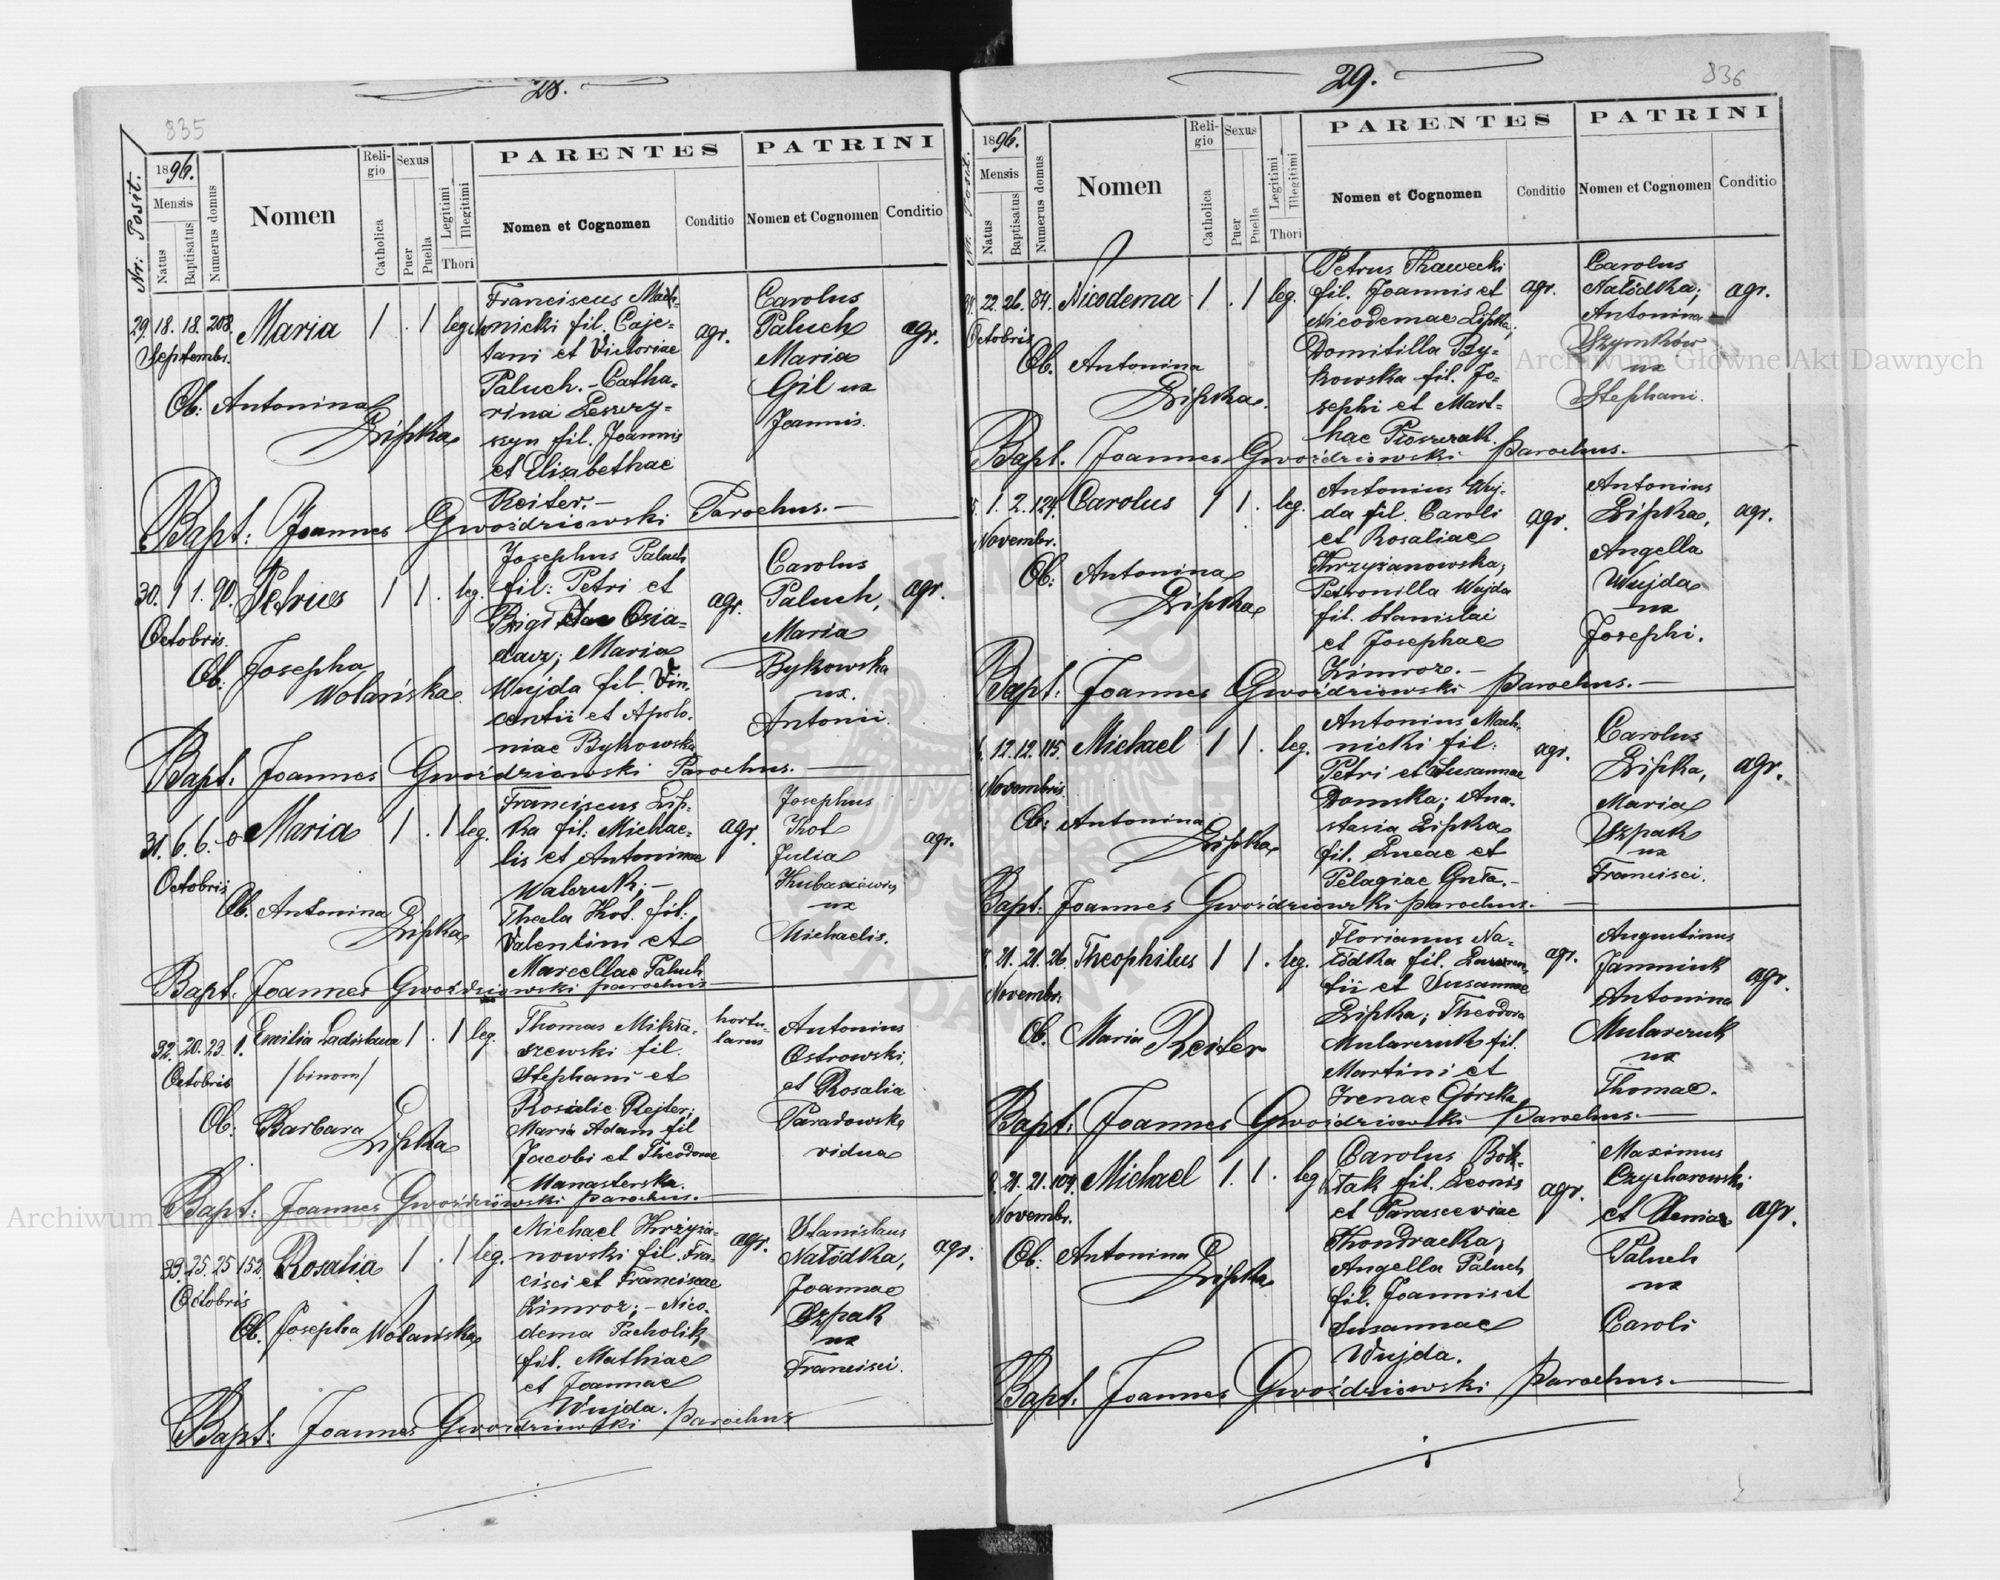 28.
835
Nr: Posit.
1896.
Mensis
Natus
Baptisatus
Numerus domus
Nomen
Religio
Catholica
Sexus
Puer
Puella
Legitimi
Illegitimi
Thori
PARENTES
Nomen et Cognomen
Conditio
PATRINI
Nomen et Cognomen
Conditio
29. 18. 18. 208. Maria 1 . 1 leg.
Septembr.
Ob: Antonina
Lipka
Franciscus Mach-
nicki fil. Caje-
tani et Victoriae
Paluch. - Catha-
rina
fil. Joannis
et Elisabethae
Reiter. -
agr.
Carolus
Paluch
Maria
Gil ux
Joannis.
agr.
Bapt: Joannes Gwoździowski Parochus. -
30. 1 1. 90. Petrus 1 1 . leg.
Octobris.
Ob. Josepha
Wolańska
Josephus Paluch
fil: Petri et
Brigittae Osia-
dacz; Maria
Wujda fil. Vin-
centii et Apolo-
niae Bykowska
agr.
Carolus
Paluch,
Maria
Bykowska
ux.
Antonii.
agr.
Bapt: Joannes Gwoździowski Parochus. -
31. 6. 6. Maria 1 . 1 leg.
Octobris
Ob. Antonina
Lipka
Franciscus Lip-
ka fil: Michae-
lis et Antoninae
Walczuk; -
Thecla Kot. fil:
Valentini et
Marcellae Paluch
agr.
Josephus
Kot
Julia
ux
Michaelis.
agr.
Bapt: Joannes Gwoździowski parochus
32. 20. 23. 1. Emilia Ladislava 1 . 1 leg.
Octobris /binom/
Ob. Barbara
Lipka
Thomas Mikła-
szewski fil.
Stephani et
Rosalie Rejter;
Maria Adam fil
Jacobi et Theodorae
Manasterska.
hortu-
lanus
Antonius
Ostrowski,
et Rosalia
Paradowska
vidua
Bapt: Joannes Gwoździowski parochus. -
33. 25. 25 152. Rosalia 1 . 1 leg.
Octobris
Ob. Josepha Wolańska
Michael Krzyża-
nowski fil. Fra-
cisci et Franciscae
Zimroz; - Nico-
dema Pacholik
fil. Mathiae
et Joannae
Wujda.
agr.
Stanislaus
Natódka,
Joannae
Szpak
ux
Francisci.
agr.
Bapt: Joannes Gwoździowski parochus
29.
836
Nr. Posit.
1896.
Mensis
Natus
Baptisatus
Numerus domus
Nomen
Religio
Catholica
Sexus
Puer
Puella
Legitimi
Illegitimi
Thori
PARENTES
Nomen et Cognomen
Conditio
PATRINI
Nomen et Cognomen
Conditio
22. 26. 84. Nicodema 1 . 1 leg.
Octobris
Ob. Antonina
Lipka.
Petrus
fil. Joannis et
Nicodemae Lipka;
Domitilla By-
kowska fil. Jo-
sephi et Mart-
hae
agr.
Carolus
Natódka;
Antonina
Szymków
ux
Stephani.
agr.
Bapt. Joannes Gwoździowski Parochus.
1. 2. 124. Carolus 1 1 . leg.
Novembr.
Ob: Antonina
Lipka
Antonius Wuj-
da fil. Caroli
et Rosaliae
Krzyżanowska;
Petronilla Wujda
fil. Stanislai
et Josephae
Zimroz. -
agr.
Antonius
Lipka,
Angella
Wujda
ux
Josephi.
agr.
Bapt: Joannes Gwoździowski parochus. -
12. 12. 115. Michael 1 1 . leg.
Novembris.
Ob: Antonina
Lipka
Antonius Mach-
nicki fil:
Petri et Susannae
Domska; Ana-
stasia Lipka
fil. Lucae et
Pelagiae Guła. -
agr.
Carolus
Lipka,
Maria
Szpak
ux
Francisci.
agr.
Bapt: Joannes Gwoździowski parochus. -
21. 21. 26. Theophilus 1 1 . leg.
Novembr.
Ob. Maria Reiter
Florianus Na-
tódka fil.
et Susannae
Lipka; Theodora
Mularczuk fil.
Martini et
Irenae Górska
agr.
Augustinus
Jamniuk
Antonina
Mularczuk
ux
Thomae.
agr.
Bapt: Joannes Gwoździowski Parochus. -
21. 21. 104. Michael 1. 1 . leg
Novembr.
Ob: Antonina
Lipka
Carolus Bok-
tak fil. Leonis
et Parasceviae
Kondracka;
Angella Paluch
fil. Joannis et
Susannae
Wujda.
agr.
Maximus
Czycharowski
et
Paluch
ux
Caroli
agr.
Bapt: Joannes Gwoździowski Parochus. -
Archiwum Główne Akt Dawnych
Archiwum Główne Akt Dawnych